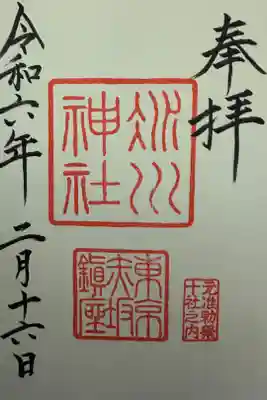 奉拝
氷川
神社
東京
赤坂
鎮座
元准勅祭
十社之内
令和六年 二月十六日